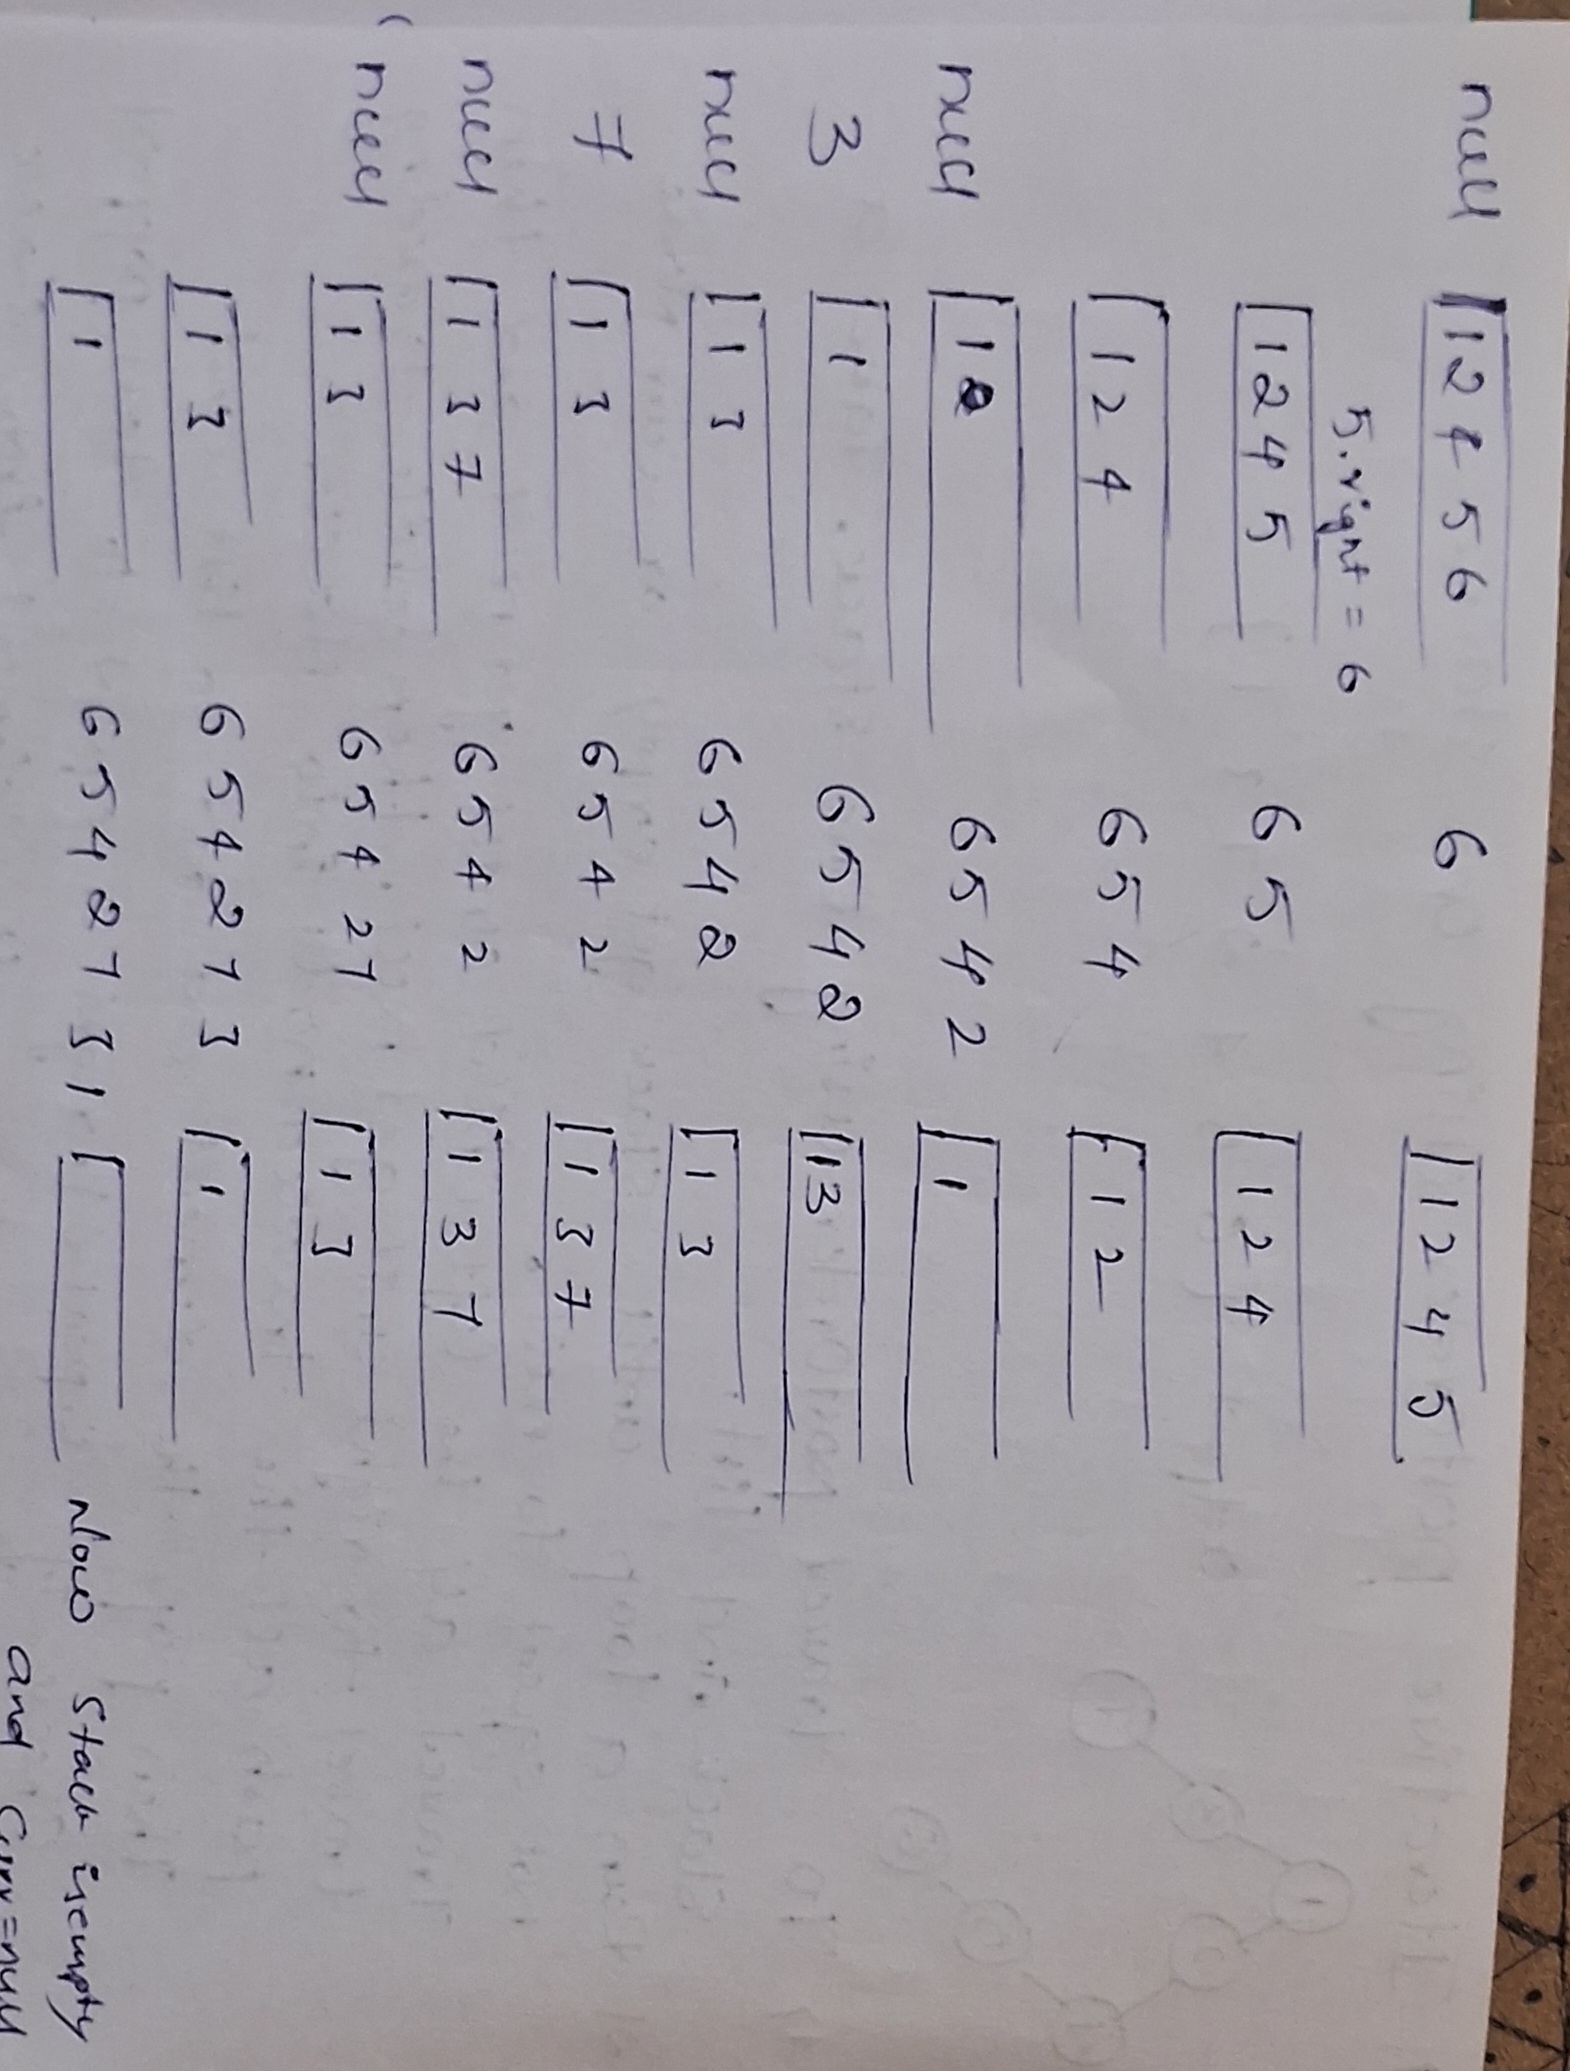 null 1 2 4 5 6 6 1 2 4 5
5.right = 6
1 2 4 5 6 5 1 2 4
1 2 4 6 5 4 1 2
null 1 2 6 5 4 2 1
3 1 6 5 4 2 1 3
null 1 3 6 5 4 2 1 3
7 1 3 6 5 4 2 1 3 7
null 1 3 7 6 5 4 2 1 3 7
null 1 3 6 5 4 2 7 1 3
1 3 6 5 4 2 7 3 1
1 6 5 4 2 7 3 1 Now Stack is empty
and Curr = null